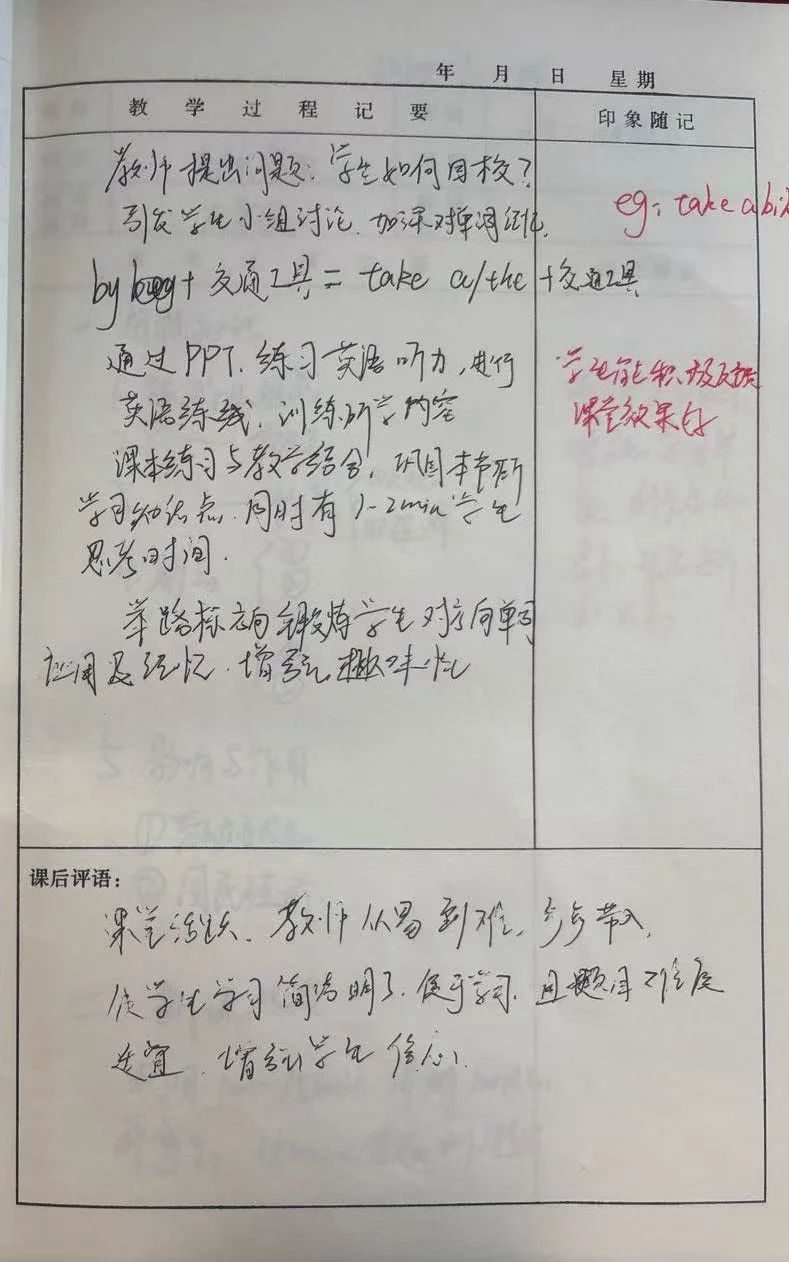 年 月 日 星期
教学过程记要
印象随记
教师提出问题：学生如何回校？
引发学生小组讨论，加深对单词记忆，
eg: take a
by + 交通工具 = take a/the + 交通工具
通过PPT，练习英语听力，进行
英语练线，训练所学内容
学生能积极反馈
课堂效果好
课本练习与教学结合，巩固本节所
学习知识点，同时有1-2min学生
思考时间.
举路标方向锻炼学生对方向单词
应用及记忆，增强趣味性
课后评语：
课堂活跃，教师从易到难，步步带入，
使学生学习简洁明了，便于学习，且题目难度
适宜，增强学生信心.